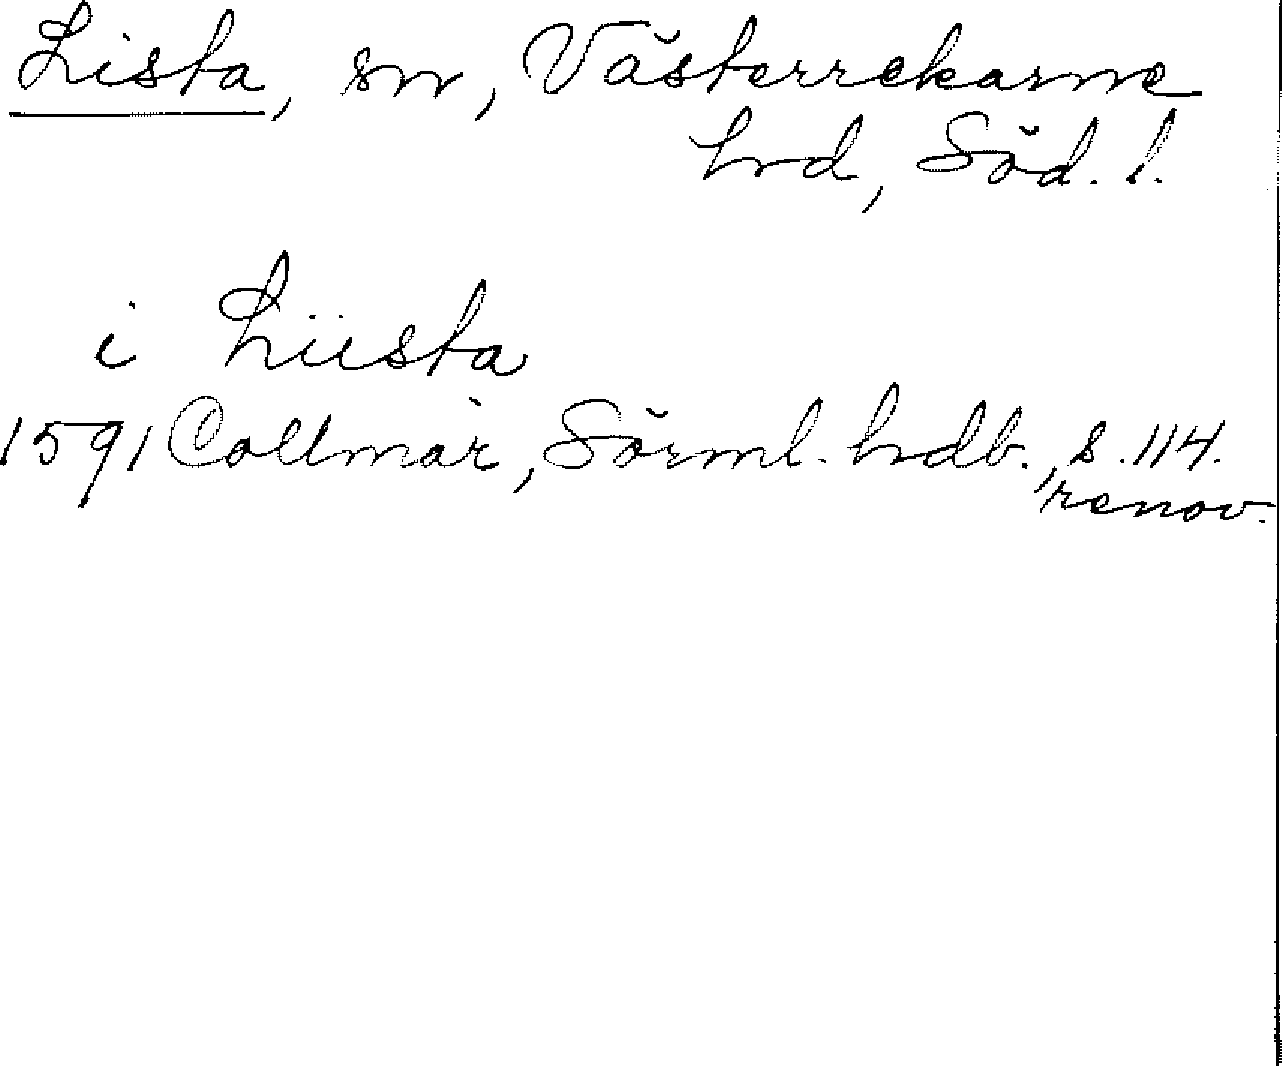 Lista, sn, Västerrekarne
hrd, Söd. l.
i Liista
1591 Collmar, Sörml. hrdb., s. 114.
renov.